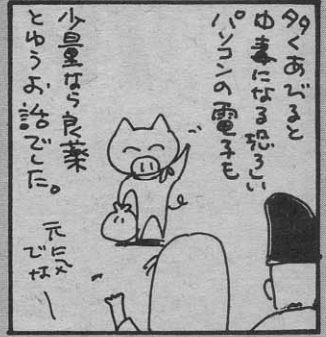 多くあびると
中毒になる恐ろしい
パソコンの電子も
少量なら良薬
とゆうお話でした。
元気
でなー